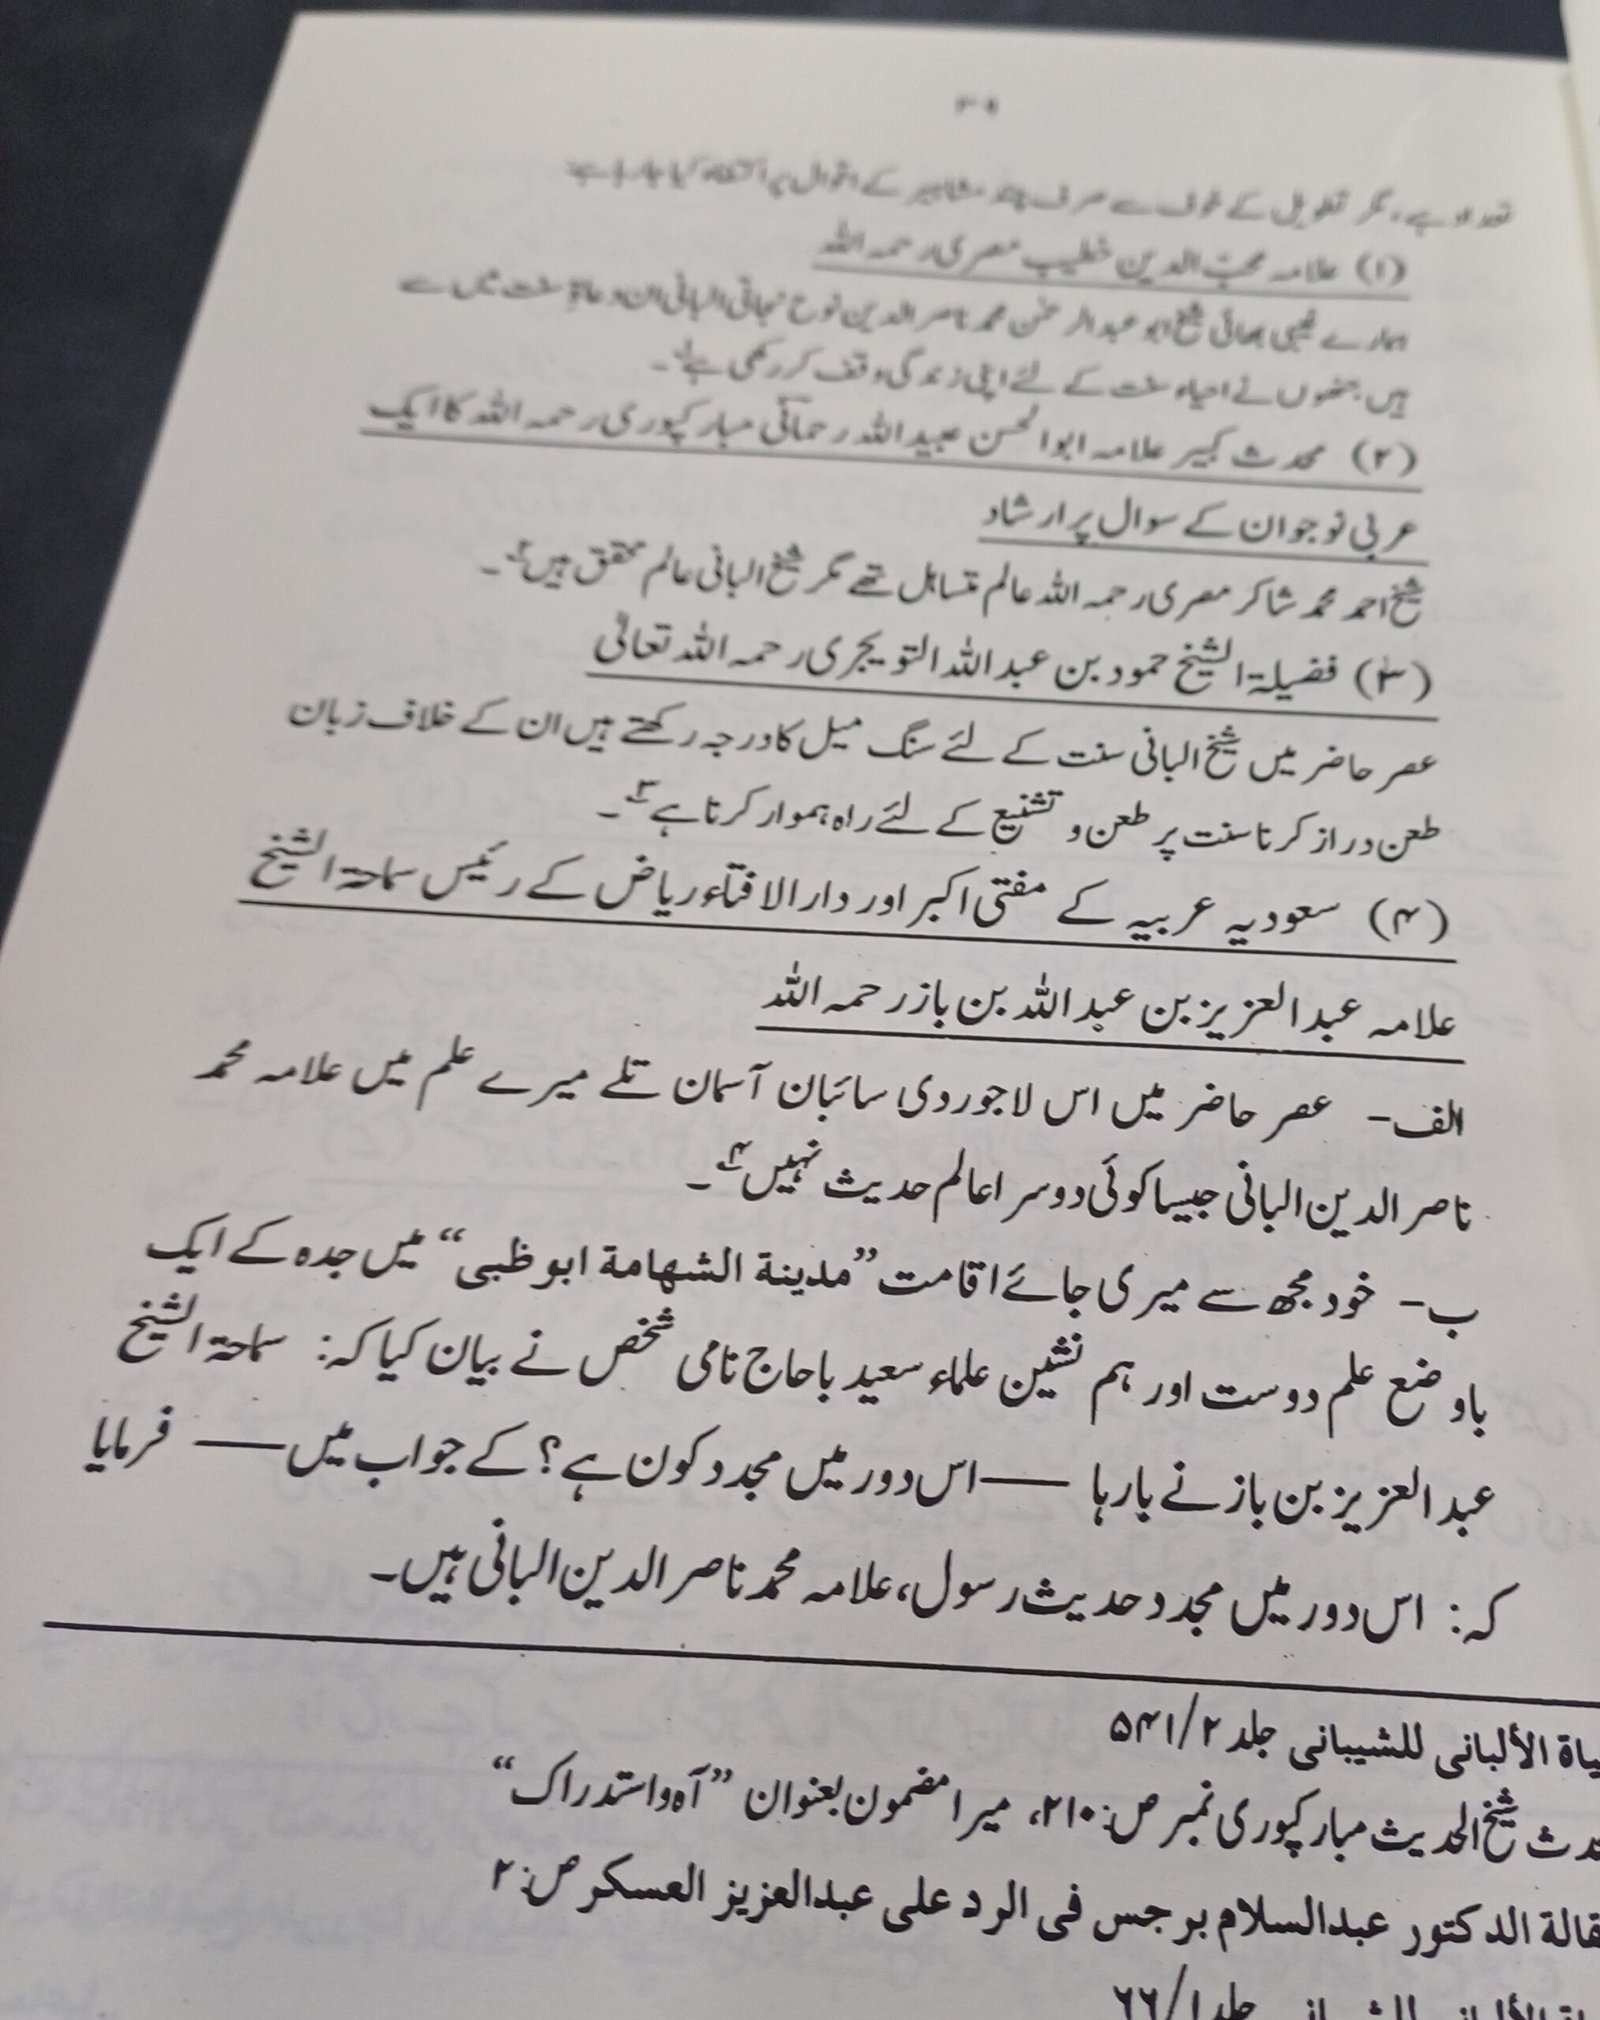 ۳۹
تعداد ہے، مگر تطویل کے خوف سے صرف چند مشاہیر کے اقوال پر اکتفاء کیا جارہا ہے:
(۱) علامہ محبّ الدین خطیب مصری رحمہ اللہ
ہمارے غیبی بھائی شیخ ابو عبدالرحمٰن محمد ناصر الدین نوح نجاتی البانی ان دعاۃِ سنت میں سے
ہیں جنھوں نے احیاء سنت کے لئے اپنی زندگی وقف کر رکھی ہے۱۔
(۲) محدث کبیر علامہ ابوالحسن عبید اللہ رحمانی مبارکپوری رحمہ اللہ کا ایک
عربی نوجوان کے سوال پر ارشاد
شیخ احمد محمد شاکر مصری رحمہ اللہ عالم متساہل تھے مگر شیخ البانی عالم محقق ہیں۲۔
(۳) فضیلۃ الشیخ حمود بن عبد اللہ التویجری رحمہ اللہ تعالیٰ
عصر حاضر میں شیخ البانی سنت کے لئے سنگ میل کا درجہ رکھتے ہیں ان کے خلاف زبان
طعن دراز کرنا سنت پر طعن و تشنیع کے لئے راہ ہموار کرنا ہے۳۔
(۴) سعودیہ عربیہ کے مفتی اکبر اور دارالافتاء ریاض کے رئیس سماحۃ الشیخ
علامہ عبدالعزیز بن عبداللہ بن باز رحمہ اللہ
الف- عصر حاضر میں اس لاجوردی سائبان آسمان تلے میرے علم میں علامہ محمد
ناصر الدین البانی جیسا کوئی دوسرا عالم حدیث نہیں۴۔
ب- خود مجھ سے میری جائے اقامت ”مدينة الشهامة ابو ظبی“ میں جدہ کے ایک
باوضع علم دوست اور ہم نشین علماء سعید باحاج نامی شخص نے بیان کیا کہ: سماحۃ الشیخ
عبدالعزیز بن باز نے بارہا ——اس دور میں مجدد کون ہے؟ کے جواب میں—— فرمایا
کہ: اس دور میں مجدد حدیث رسول، علامہ محمد ناصر الدین البانی ہیں۔
یاة الألبانی للشیبانی جلد ۵۴۱/۲
دث شیخ الحدیث مبارکپوری نمبر ص:۲۱۰، میرا مضمون بعنوان ”آہ واستدراک“
قالة الدکتور عبدالسلام برجس فی الرد علی عبدالعزیز العسکر ص:۲
جلد ۶۶/۱